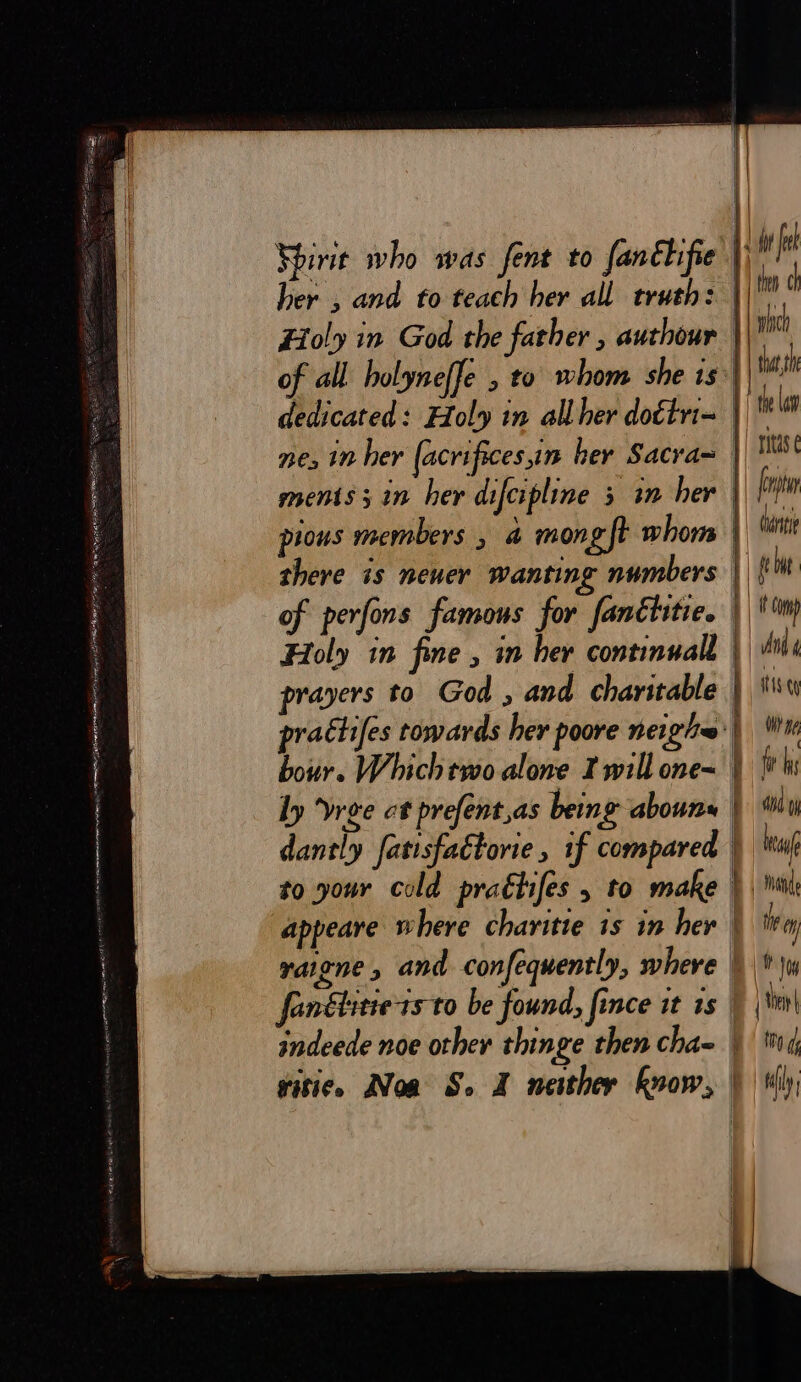 Spirit who was ſent to ſanctifie
her , and to teach her all truth:
Holy in God the father , authour
of all holyneſſe , to whom she is
dedicated: Holy in all her doctri-
ne, in her ſacrifices,in her Sacra-
ments; in her diſcipline ; in her
pious members , a mongſt whom
there is neuer wanting numbers
of perſons famous for ſanctitie.
Holy in fine , in her continuall
prayers to God , and charitable
practiſes towards her poore neigh-
bour. Which two alone I will one-
ly vrge at preſent,as being aboun-
dantly ſatisfactorie, if compared
to your cold practiſes , to make
appeare where charitie is in her
raigne , and conſequently, where
ſanctitie is to be found, ſince it is
indeede noe other thinge then cha-
ritie. Noa S. I neither know,
for
then
which
that the
the law
it
And
and